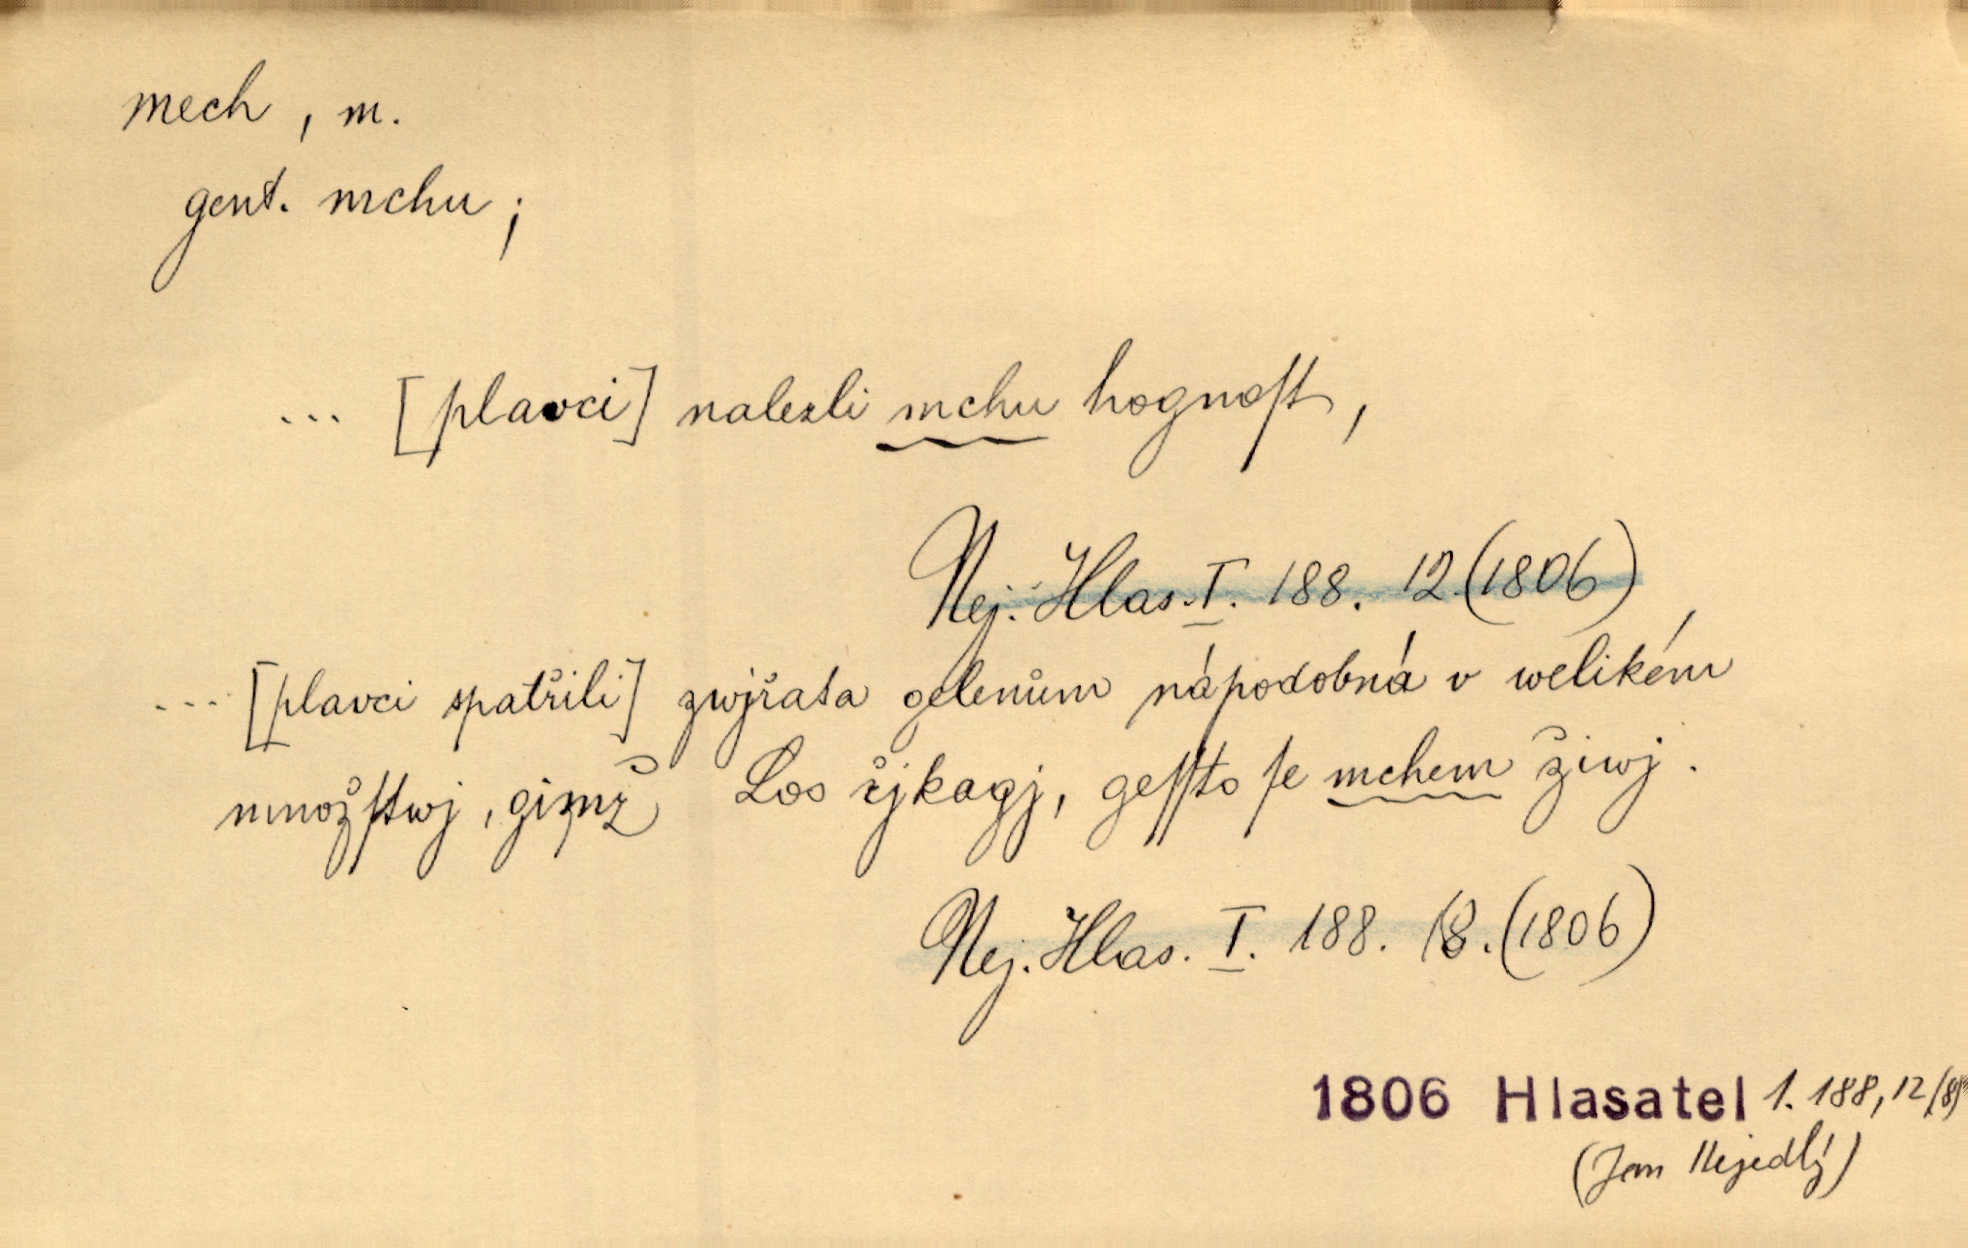 mech, m.
gent. mchu;
... [plavci] nalezli mchu hognoſt,
Nej. Hlas. I. 188. 12 (1806)
... [plavci spatřili] zwjřata gelenům nápodobná v welikém
množſtwj, gimž Los řjkagj, geſſto ſe mchem žiwj.
Nej. Hlas. I. 188. 18. (1806)
1806 Hlasatel 1. 188, 12/
(Jan Nejedlý)